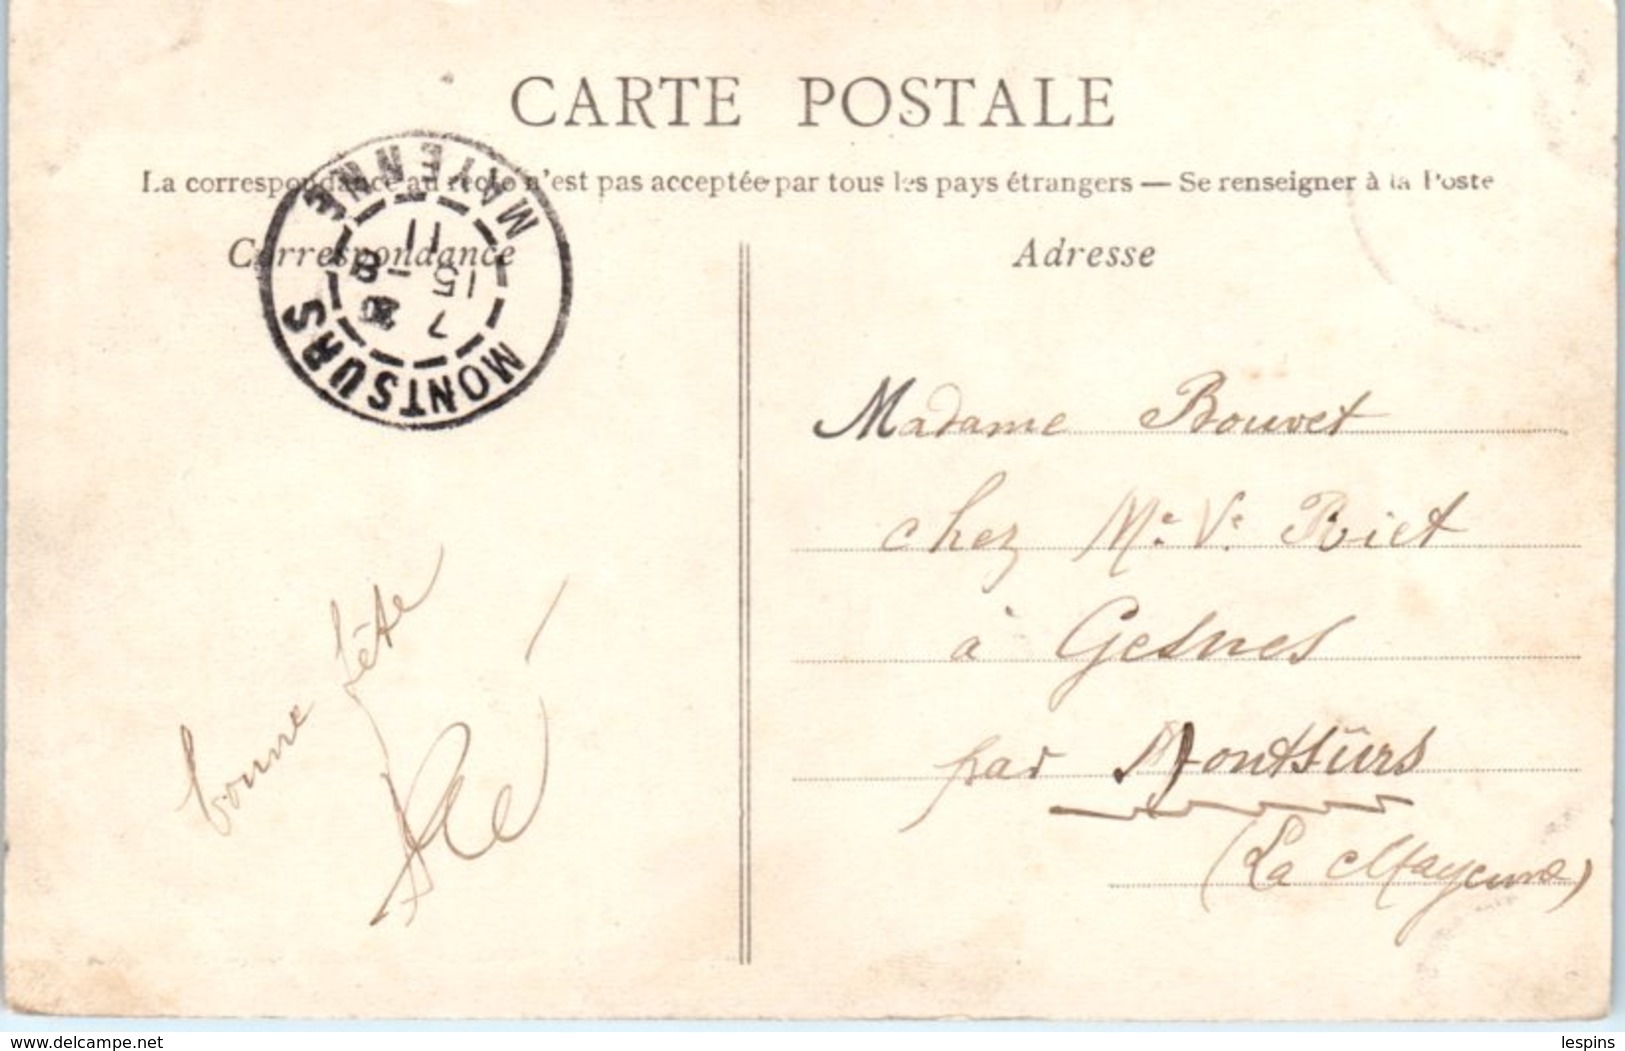 CARTE POSTALE
La correspondance au recto n'est pas acceptée par tous les pays étrangers — Se renseigner à la Poste
Correspondance
Adresse
MONTSURS
MAYENNE
7
15 - 8
11
bonne fête
Madame Bouvet
chez Me Ve
à Gesnes
par Montsûrs
(La Mayenne)
www.delcampe.net
lespins